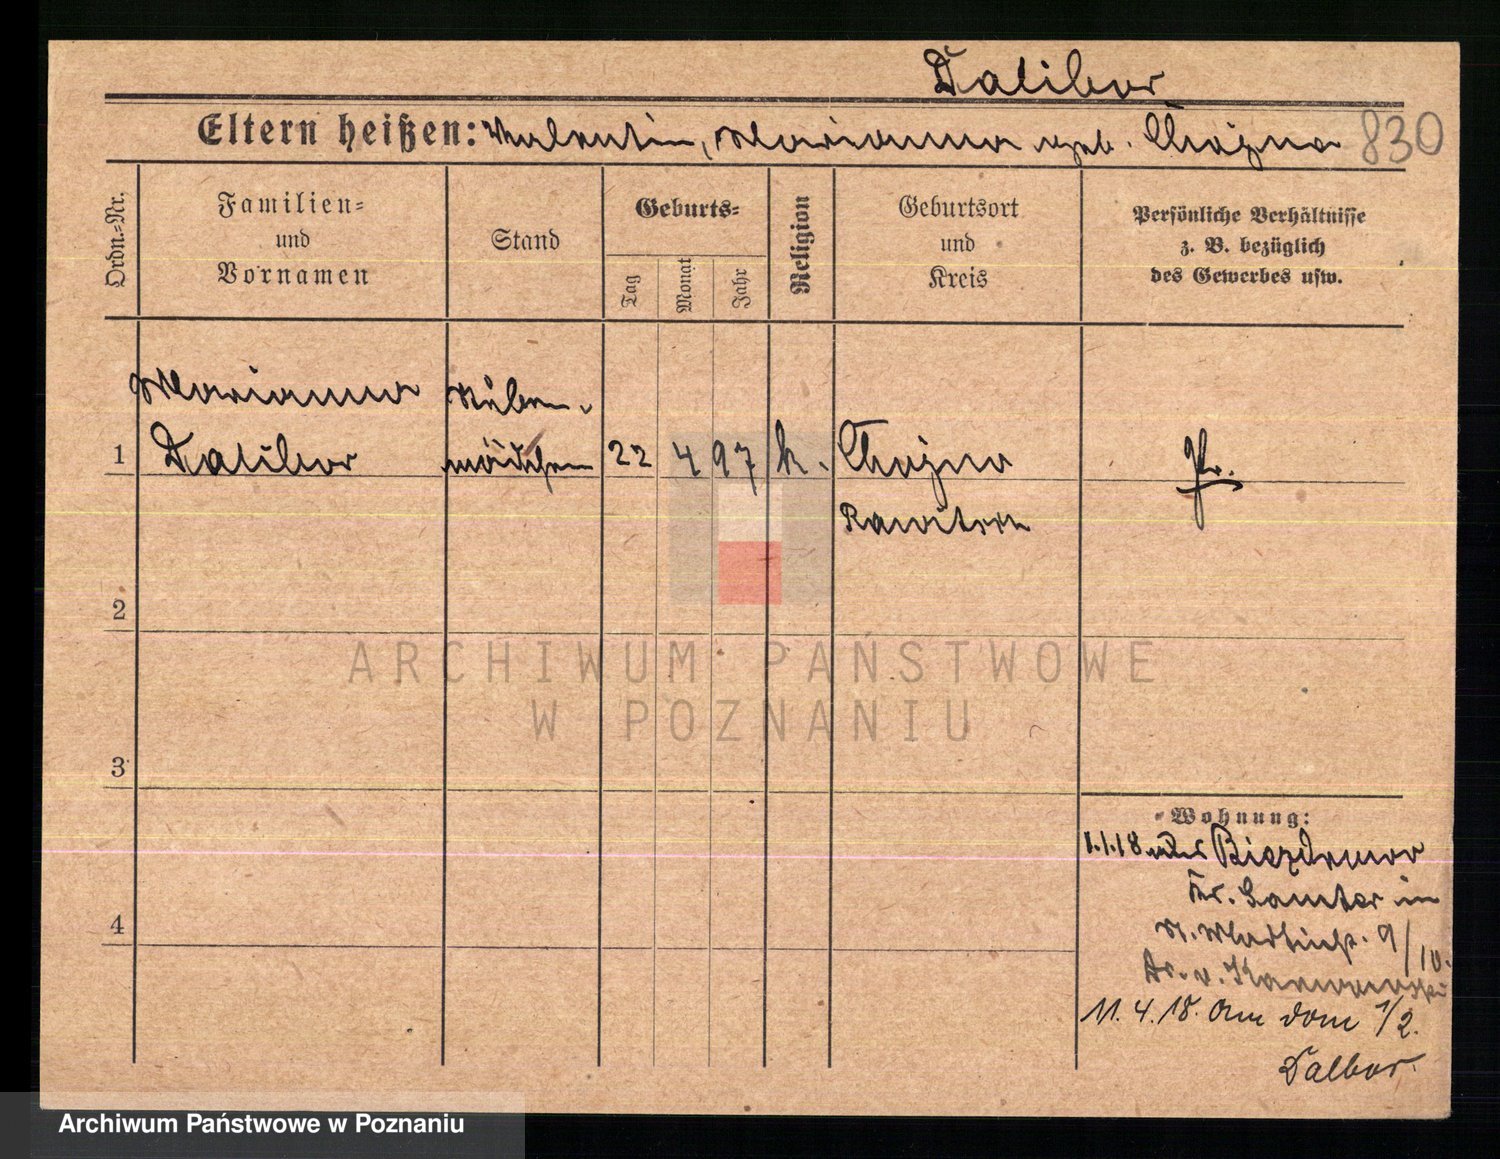 Dalibor
Eltern heißen: Valentin, Marianna geb. Chojna 830
Ordn.=Nr.
Familien=
und
Vornamen
Stand
Geburts=
Tag
Monat
Jahr
Religion
Geburtsort
und
Kreis
Persönliche Verhältnisse
z. B. bezüglich
des Gewerbes usw.
Marianna Stuben-
1 Dalibor mädchen 22 4 97 k. Chojno
Rawitsch
2
ARCHIWUM PAŃSTWOWE
W POZNANIU
3
Wohnung:
1.1.18 aus Biezdrowo
Kr. Samter in
9/10.
v.
4
11. 4. 18. Am Dom 1/2.
Dalbor.
Archiwum Państwowe w Poznaniu